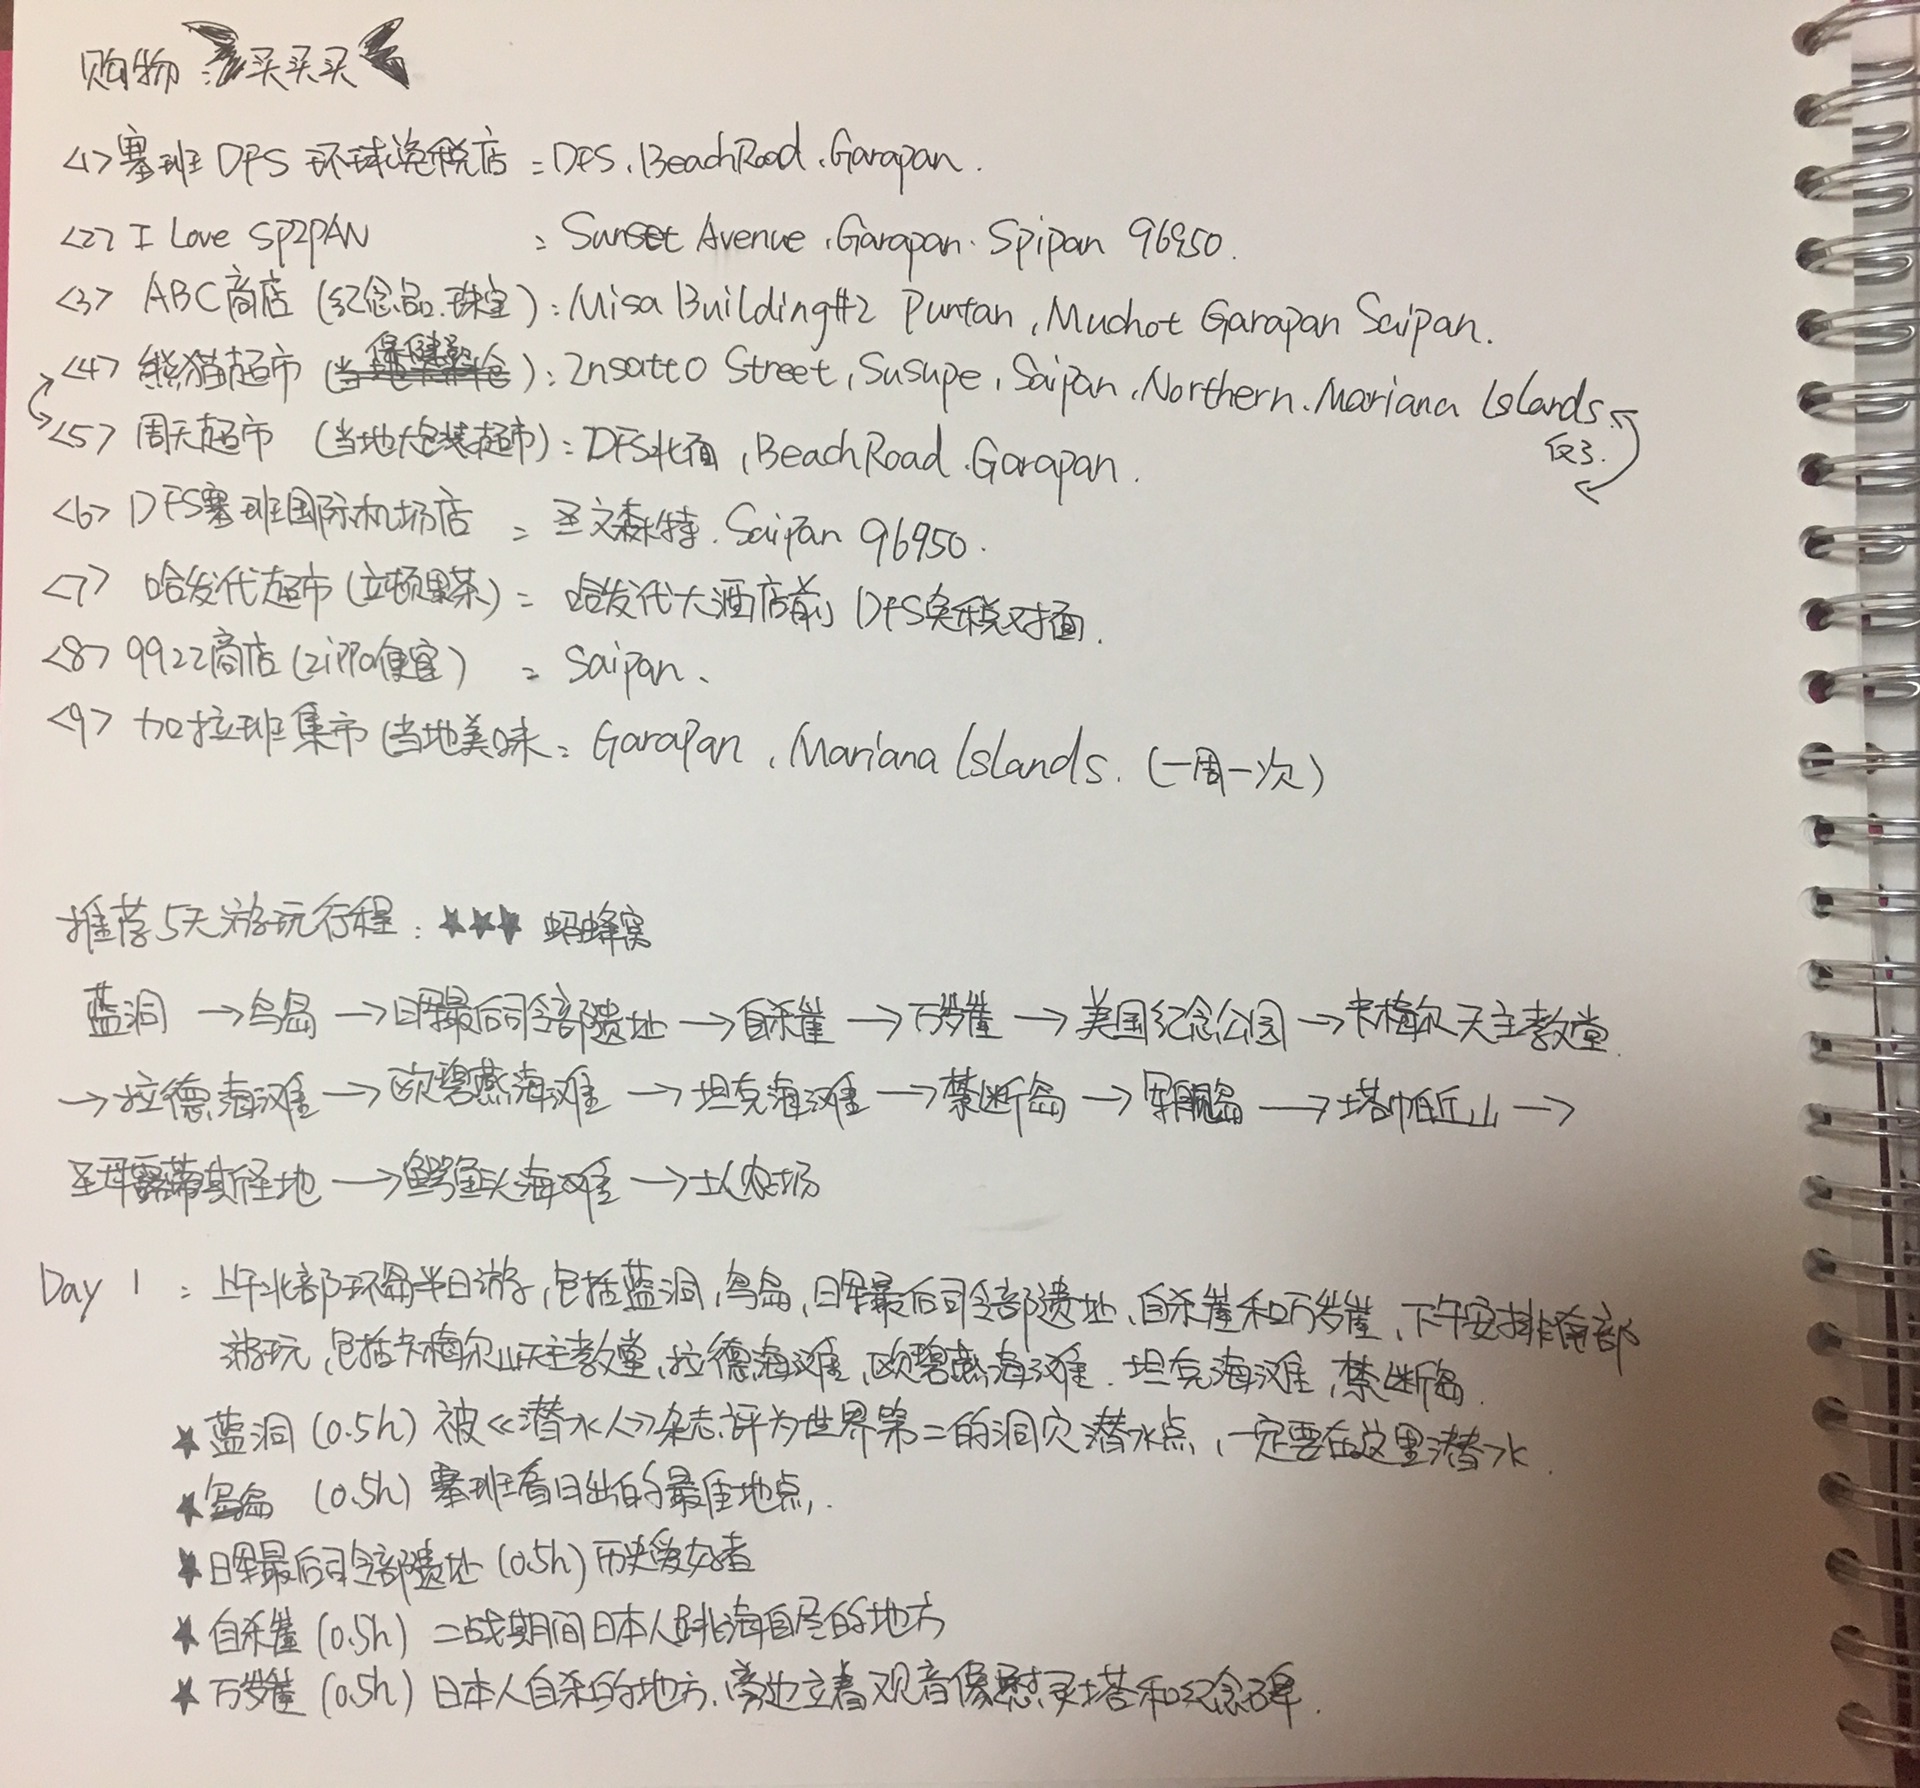 购物 买买买
<1> 塞班DFS环球免税店 : DFS, Beach Road, Garapan.
<2> I Love SPIPAN : Sunset Avenue, Garapan. Spipan 96950.
<3> ABC商店 (纪念品.珠宝) : Misa Building#2 Puntan, Muchot Garapan Saipan.
保健
<4> 熊猫超市 () : Insatto Street, Susupe, Saipan, Northern. Mariana Islands.
<5> 周天超市 (当地大包装超市) : DFS北面, Beach Road. Garapan.
反了.
<6> DFS塞班国际机场店 : 圣文森特. Saipan 96950.
<7> 哈发代超市 (立顿果茶) : 哈发代大酒店前 DFS免税对面.
<8> 9922商店 (zippo便宜) : Saipan.
<9> 加拉班集市 (当地美味 : Garapan, Mariana Islands. (一周一次)
推荐5天游玩行程 : ★★★ 蚂蜂窝
蓝洞 → 鸟岛 → 日军最后司令部遗址 → 自杀崖 → 万岁崖 → 美国纪念公园 → 卡梅尔天主教堂
→ 拉德海滩 → 欧碧燕海滩 → 坦克海滩 → 禁断岛 → 军舰岛 → 塔帕丘山 →
圣母露蒂斯圣地 → 鳄鱼头海滩 → 土人农场
Day 1 : 上午北部环岛半日游, 包括蓝洞, 鸟岛, 日军最后司令部遗址, 自杀崖和万岁崖, 下午安排南部
游玩, 包括卡梅尔山天主教堂, 拉德海滩, 欧碧燕海滩. 坦克海滩, 禁断岛.
★ 蓝洞 (0.5h) 被《潜水人》杂志评为世界第二的洞穴潜水点, 一定要在这里潜水.
★ 鸟岛 (0.5h) 塞班看日出的最佳地点,.
★ 日军最后司令部遗址 (0.5h) 历史爱好者
★ 自杀崖 (0.5h) 二战期间日本人跳海自尽的地方
★ 万岁崖 (0.5h) 日本人自杀的地方. 旁边立着观音像慰灵塔和纪念碑.